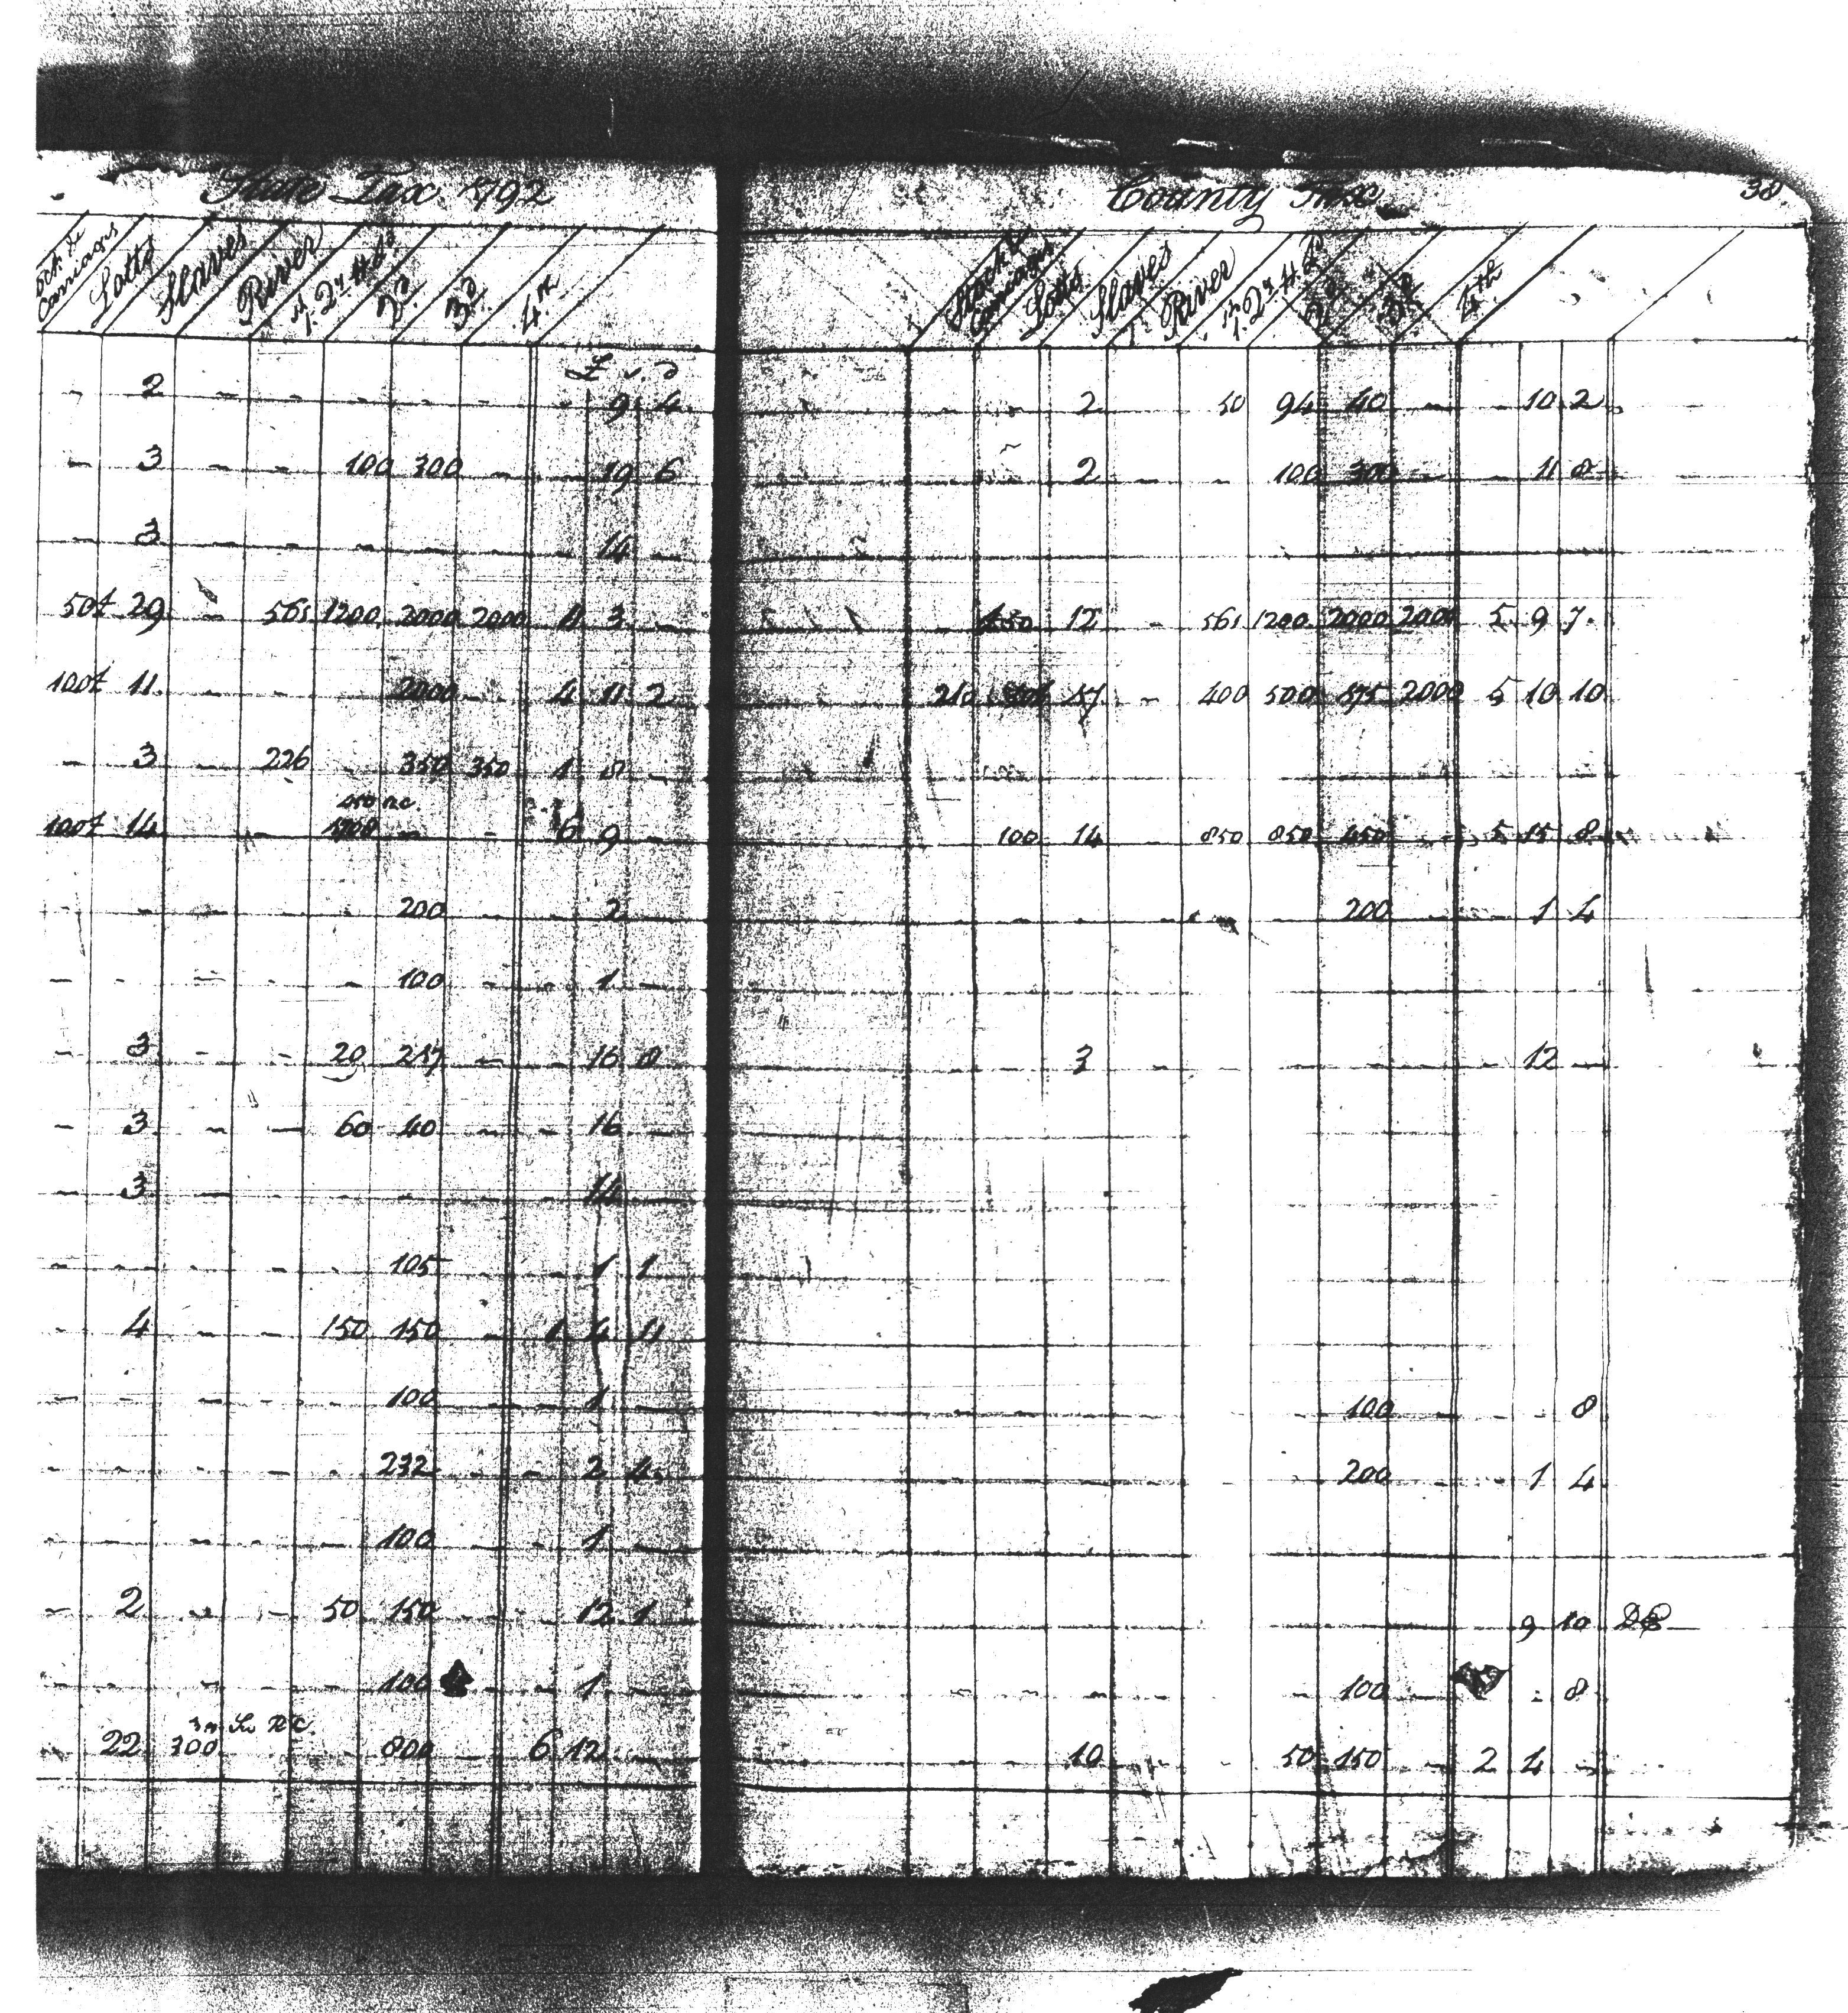 State Tax 1792
County Tax
38
Carriages Lotts Slaves River 1st 2d H. Ld 2d 3d 4th
Stock & Carriages Lotts Slaves River 1st 2d H. Ld 2d 3d 4th
£ s. d
2 - - - - - - 9 4 - - 2 50 94 40 - - 10 2
- 3 - - 100 300 - 19 6 2 - - 100 300 - 11 8
- 3 - - - - - 14 -
50£ 29 - 561 1200 2000 2000 3 - 12 - 561 1200 2000 2000 5 9 7
100£ 11 - - - 2000 - 4 11 2 210 17 - 400 500 875 2000 5 10 10
- 3 - 226 350 350 1 8 -
450 n.c.
100£ 14 - - - 6 9 - 100 14 - 850 850 450 - 5 15 8
- - - - - 200 - - 2 - 200 - - 1 4
- - - - - 100 - - 1 -
- 3 - - 20 217 - 16 8 3 - - - - - 12 -
- 3 - - 60 40 - - 16 -
- 3 - - - - - - 14 -
- - - - - 105 - - 1 1
- 4 - - 150 150 - 1 4 11
- - - - - 100 - - 1 - 100 - - - 8
- - - - - 232 - - 2 4 200 - - 1 4
- - - - - 100 - - 1 -
- 2 - - 50 150 - - 12 1 9 10
- - - - - 100 - 1 - 100 - - 8
n.c.
- 22 300 - 800 - 6 12 - 10 - - 50 150 - 2 4 -